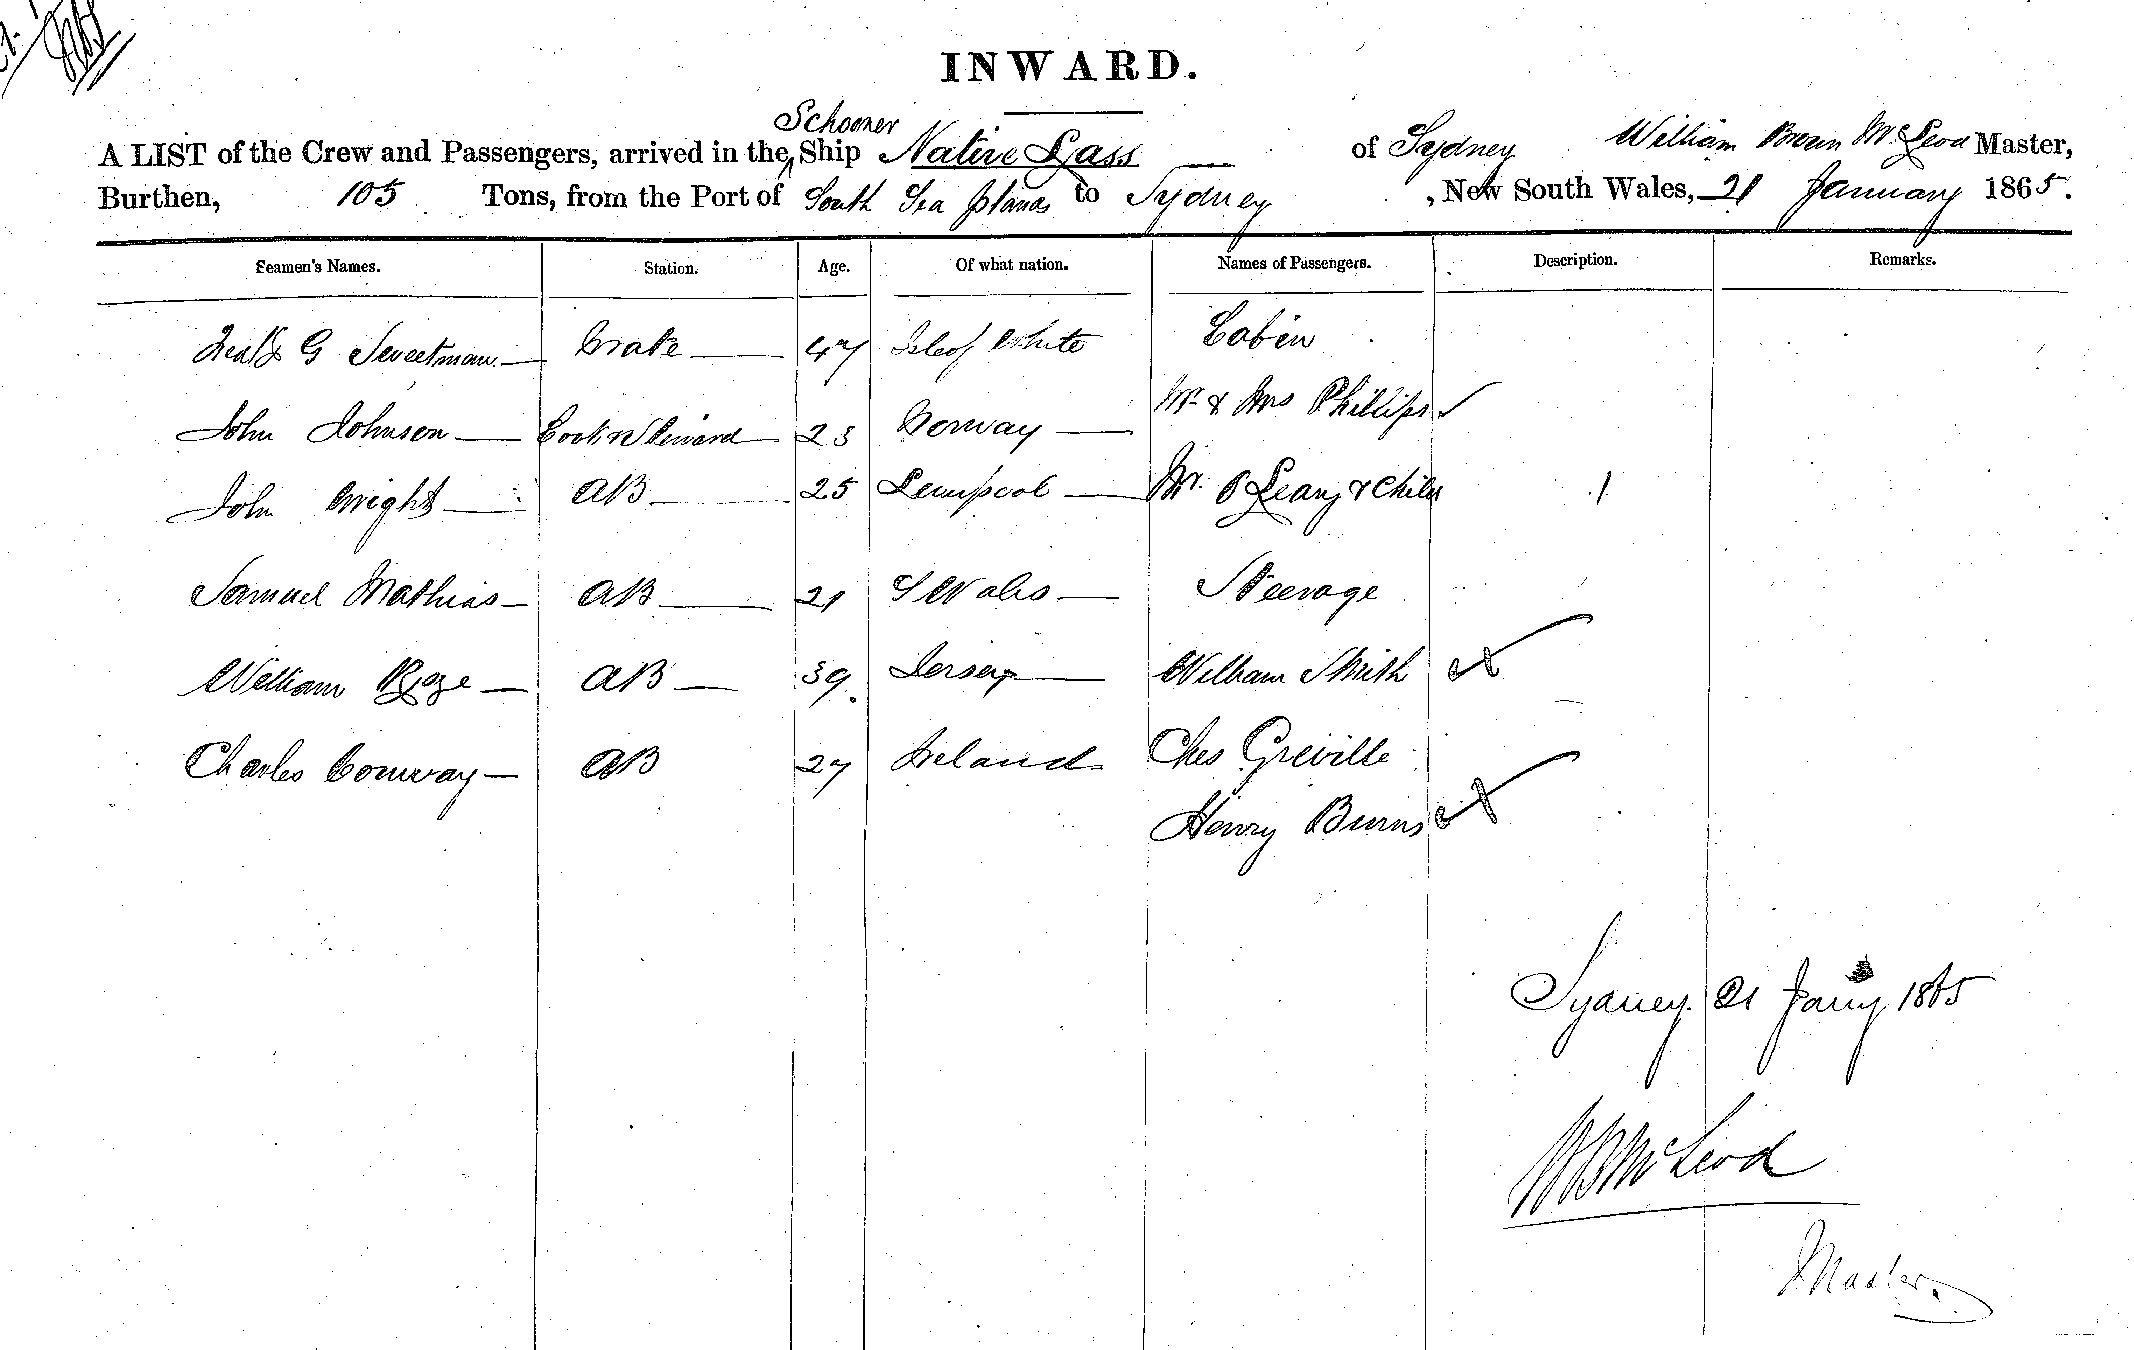 INWARD.
Schooner
A LIST of the Crew and Passengers, arrived in the Ship Native Lass of Sydney William Brown McLeod Master,
Burthen, 105 Tons, from the Port of South Sea Islands to Sydney, New South Wales, 21 January 1865.
Seamen's Names. Station. Age. Of what nation. Names of Passengers. Description. Remarks.
Cabin
G Sweetman Mate 47 Isle of White
Mr & Mrs Phillips
John Johnson Cook & Steward 23 Norway
John Wright AB 25 Liverpool Mr O Leary & Child 1
Samuel Mathias AB 21 S Wales Steerage
William AB 39 Jersey William Smith
Charles Conway AB 27 Ireland Chas Greville
Henry Burns
Sydney 21 Jany 1865
WB McLeod
Master